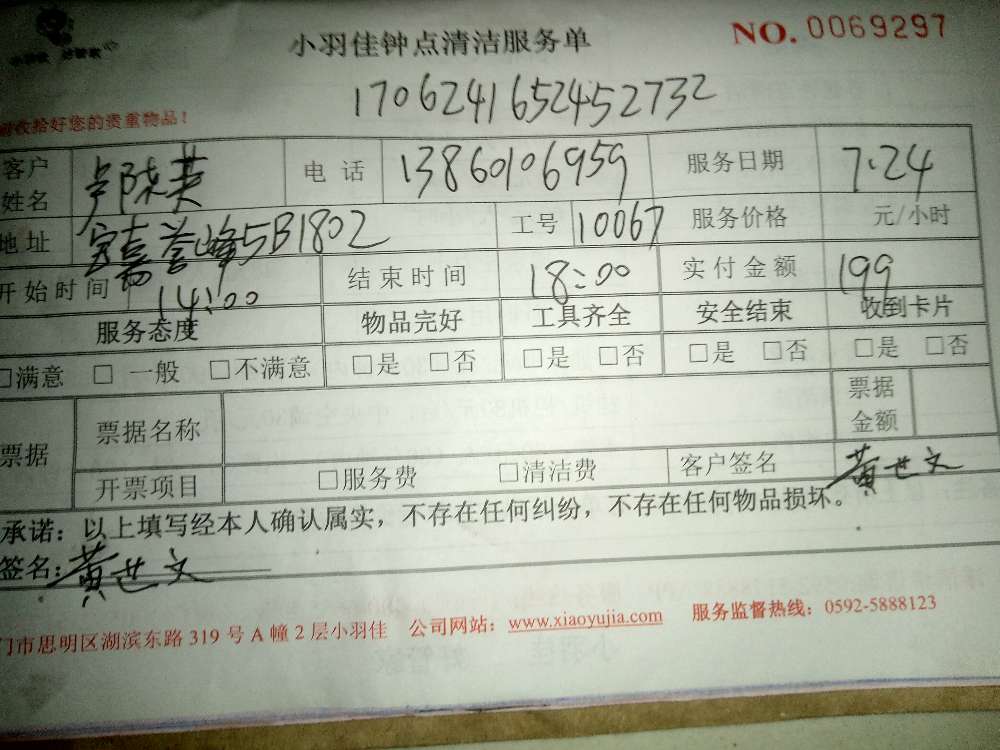 小羽佳钟点清洁服务单 NO. 0069297
1706241652452732
收拾好您的贵重物品！
客户姓名 卢陈英 电话 13860106959 服务日期 7.24
地址 宝嘉誉峰5B1802 工号 10067 服务价格 元/小时
开始时间 14:00 结束时间 18:00 实付金额 199
服务态度 物品完好 工具齐全 安全结束 收到卡片
□满意 □一般 □不满意 □是 □否 □是 □否 □是 □否 □是 □否
票据 票据名称 票据金额
开票项目 □服务费 □清洁费 客户签名 黄世文
承诺：以上填写经本人确认属实，不存在任何纠纷，不存在任何物品损坏。
签名：黄世文
门市思明区湖滨东路 319 号 A 幢 2 层小羽佳 公司网站：www.xiaoyujia.com 服务监督热线：0592-5888123